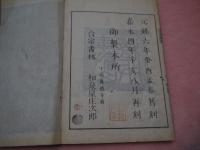 元禄六年癸酉孟春舊刻
嘉永四年辛亥八月再刻
御製本所
合宗書林
和泉屋庄次郎